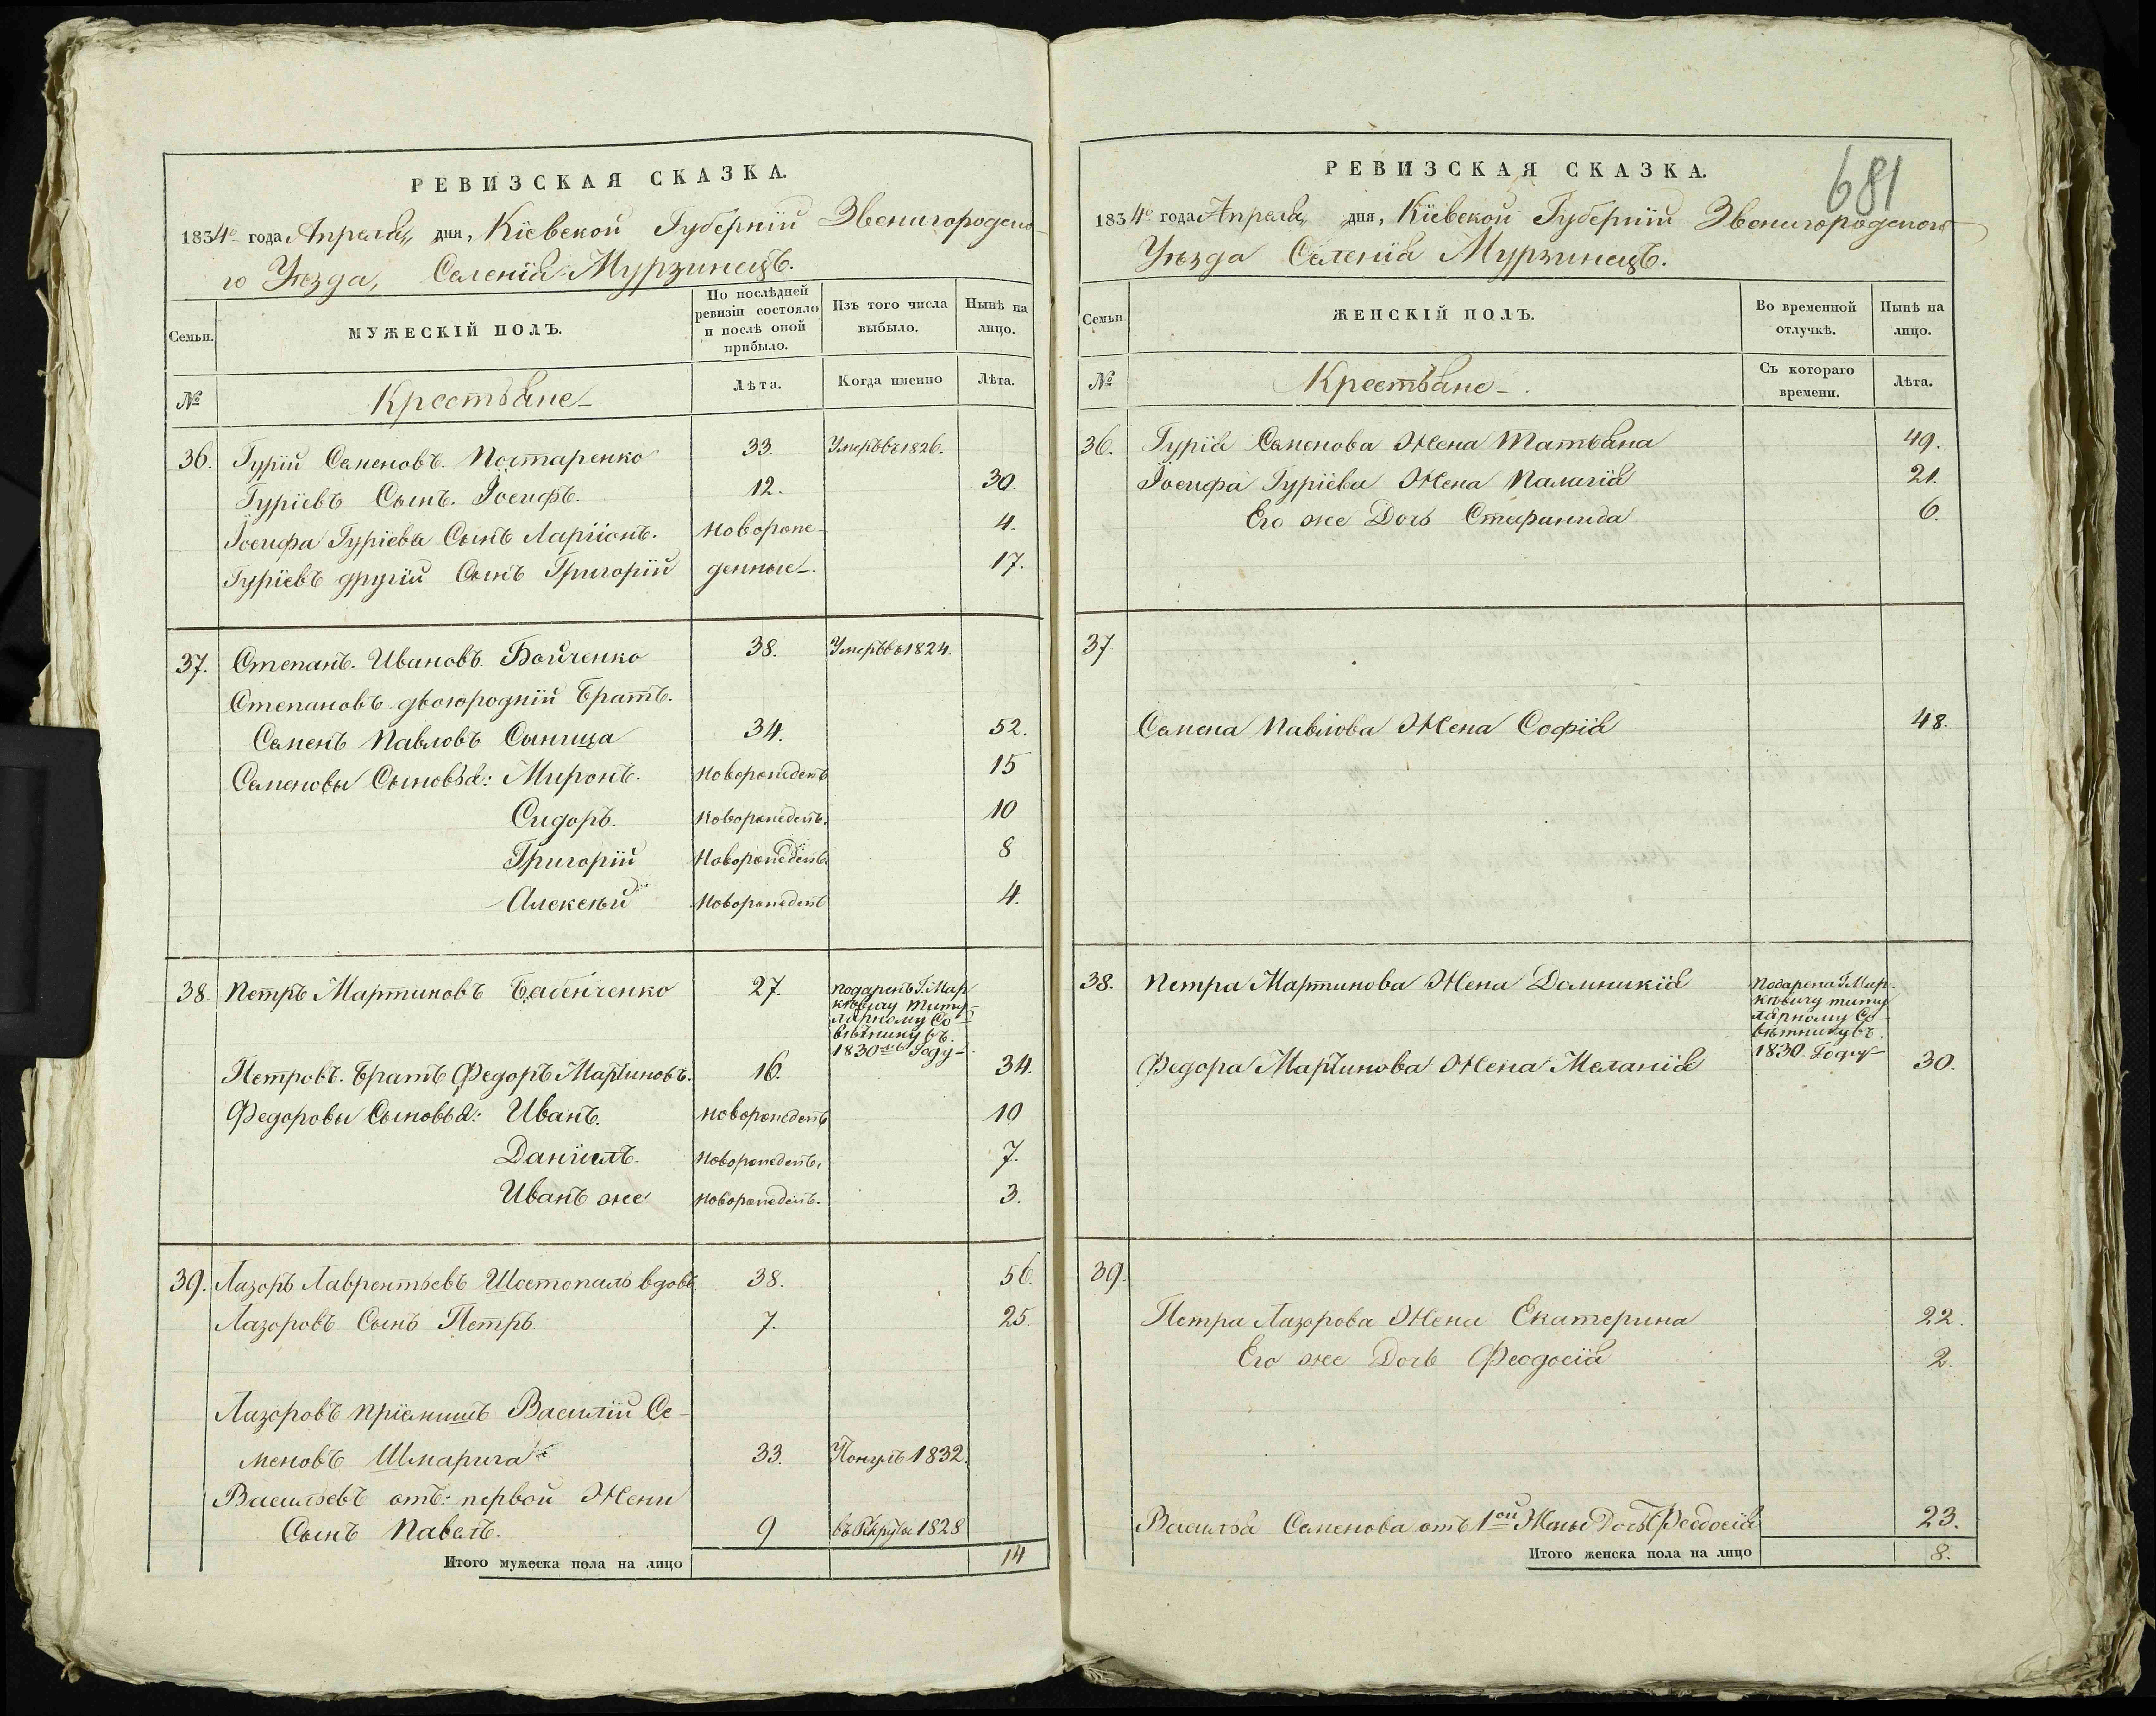 РЕВИЗСКАЯ СКАЗКА.
1834го года Апреля „ дня, Кіевской Губерніи Звенигородско-
го Уѣзда, Селенія Мурзинецъ.
Семьи.
МУЖЕСКІЙ ПОЛЪ.
По послѣдней ревизіи состояло и послѣ оной прибыло.
Изъ того числа выбыло.
Нынѣ на лицо.
№
Крестьяне
Лѣта.
Когда именно
Лѣта.
36. Гурій Семеновъ. Постаренко 33. Умеръ въ 1826.
Гуріевъ Сынъ. Іосифъ. 12. 30.
Іосифа Гуріева Сынъ Ларіонъ. Новорож- 4.
Гуріевъ другій Сынъ Григорій денные. 17.
37. Степанъ. Ивановъ. Бойченко 38. Умеръ въ 1824.
Степановъ двоюродній Братъ.
Семенъ Павловъ Синица 34. 52.
Семеновы Сыновья: Миронъ. Новорожденъ 15
Сидоръ. Новорожденъ. 10
Григорій Новорожденъ. 8
Алексѣй Новорожденъ 4.
38. Петръ Мартиновъ Бабенченко 27. подаренъ Г. Мар
Титу-
лярному Со-
вѣтнику въ.
1830мъ Году
Петровъ. Братъ Федоръ Мартиновъ. 16. 34.
Федоровы Сыновья: Иванъ. Новорожденъ 10
Даніилъ. Новорожденъ. 7.
Иванъ же Новорожденъ. 3.
39. Лазоръ Лаврентьевъ Шостопалъ вдовъ. 38. 56.
Лазоровъ Сынъ Петръ. 7. 25.
Лазоровъ пріемышъ Василій Се-
меновъ Шмарига 33. 1832.
Васильевъ отъ: первой Жени
Сынъ Павелъ. 9 въ Рекруты 1828
Итого мужеска пола на лицо 14
681
РЕВИЗСКАЯ СКАЗКА.
1834го года Апреля „ дня, Кіевской Губерніи Звенигородского
Уѣзда Селенія Мурзинецъ.
Семьи
ЖЕНСКІЙ ПОЛЪ.
Во временной отлучкѣ.
Нынѣ на лицо.
№
Крестьяне
Съ котораго времени.
Лѣта.
36. Гурія Семенова Жена Татьяна 49.
Іосифа Гуріева Жена Палагія 21.
Его же Дочь Стефанида 6.
37.
Семена Павлова Жена Софія 48.
38. Петра Мартинова Жена Домникія Подарена Г. Мар-
титу
лярному Со-
вѣтнику въ
1830. Году
Федора Мартинова Жена Меланія 30.
39.
Петра Лазорова Жена Екатерина 22.
Его же Дочь Феодосія 2.
Василья Семенова отъ 1ой Жены Дочь Феодосія 23.
Итого женска пола на лицо 8.